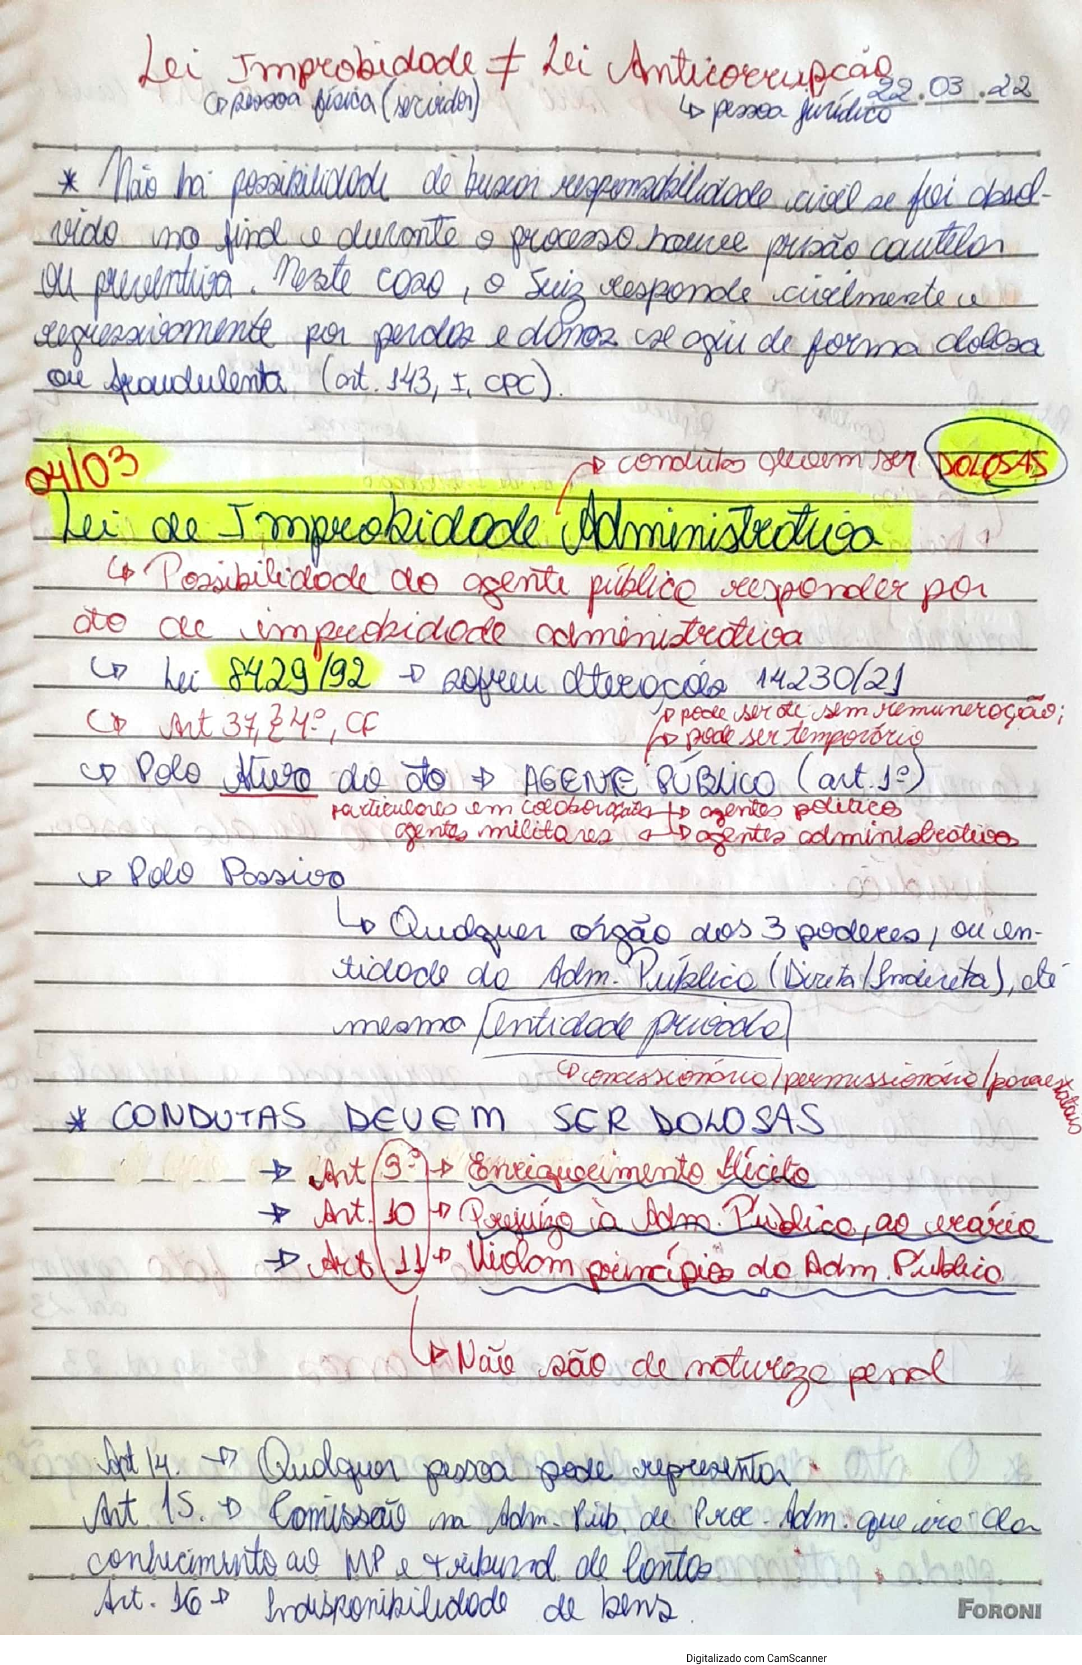 Lei Improbidade ≠ Lei Anticorrupção
↳ pessoa física (servidor) ↳ pessoa jurídica 22.03.22
* Não há possibilidade de buscar responsabilidade civil se foi absol-
vido no final e durante o processo houve prisão cautelar
ou preventiva. Neste caso, o Juiz responde civilmente e
regressivamente por perdas e danos se agiu de forma dolosa
ou fraudulenta (art. 143, I, CPC).
04/03 → condutas devem ser DOLOSAS
Lei de Improbidade Administrativa
↳ Possibilidade do agente público responder por
ato de improbidade administrativa
↳ Lei 8429/92 → sofreu alterações 14230/21
↳ Art 37, § 4º, CF → pode ser de sem remuneração;
→ pode ser temporário
↳ Polo Ativo do ato → AGENTE PÚBLICO (art. 1º)
particulares em colaboração ← → agentes políticos
agentes militares ← → agentes administrativos
↳ Polo Passivo
↳ Qualquer orgão dos 3 poderes, ou en-
tidade da Adm. Pública (Direta/Indireta), até
mesmo entidade privada
↳ concessionária/permissionária/paraestatais
* CONDUTAS DEVEM SER DOLOSAS
→ Art 9º → Enriquecimento Ilícito
→ Art. 10 → Prejuízo à Adm. Pública, ao erário
→ Art 11 → Violam princípios da Adm. Pública
↳ Não são de natureza penal
Art 14. → Qualquer pessoa pode representar
Art 15. → Comissão na Adm. Púb. de Proc. Adm. que irá dar
conhecimento ao MP e tribunal de Contas
Art. 16 → Indisponibilidade de bens.
FORONI
Digitalizado com CamScanner